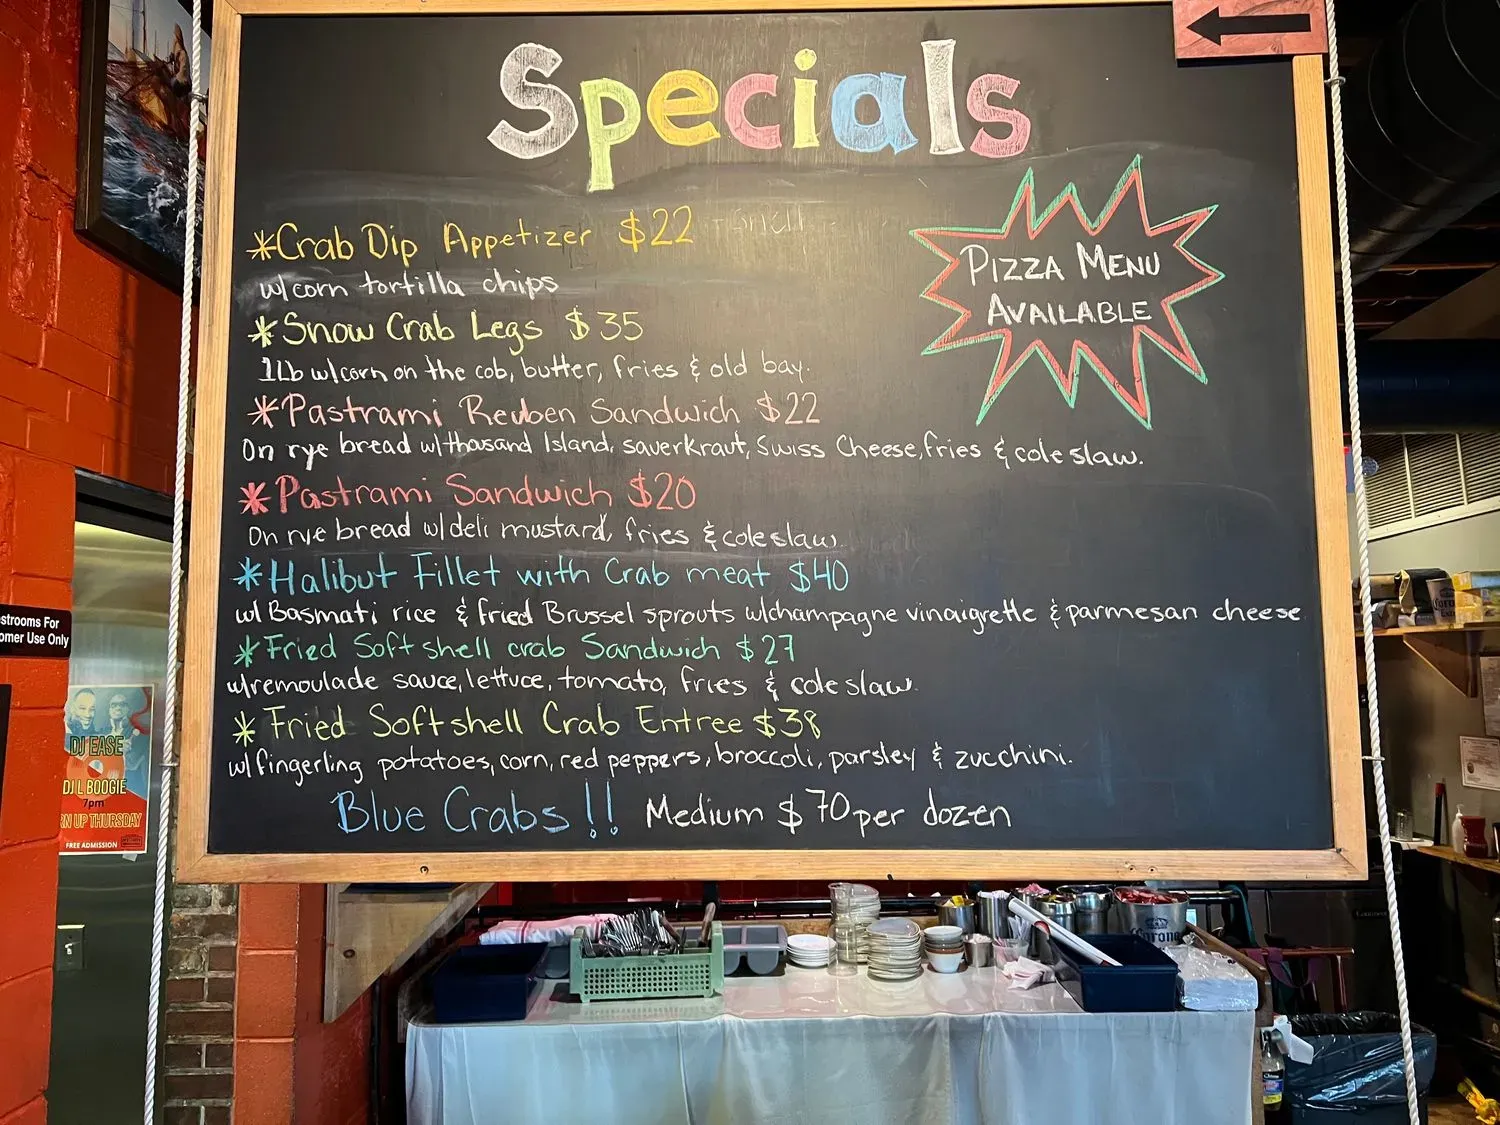 Specials
*Crab Dip Appetizer $22
w/corn tortilla chips
*Snow Crab Legs $35
1Lb w/corn on the cob, butter, fries & old bay.
*Pastrami Reuben Sandwich $22
On rye bread w/thousand Island, sauerkraut, Swiss Cheese, fries & cole slaw.
*Pastrami Sandwich $20
On rye bread w/deli mustard, fries & cole slaw.
*Halibut Fillet with Crab meat $40
w/ Basmati rice & fried Brussel sprouts w/champagne vinaigrette & parmesan cheese
*Fried Softshell crab Sandwich $27
w/remoulade sauce, lettuce, tomato, fries & cole slaw.
*Fried Softshell Crab Entree $38
w/fingerling potatoes, corn, red peppers, broccoli, parsley & zucchini.
Blue Crabs!! Medium $70 per dozen
PIZZA MENU
AVAILABLE
strooms For
omer Use Only
DJ EASE
DJ L BOOGIE
7pm
RN UP THURSDAY
FREE ADMISSION
Corona